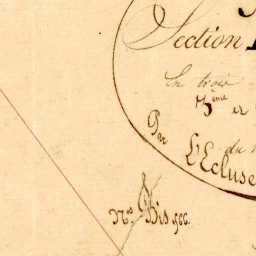 Section
En trois
5ème
Par
du
L'Ecluse
No Bis